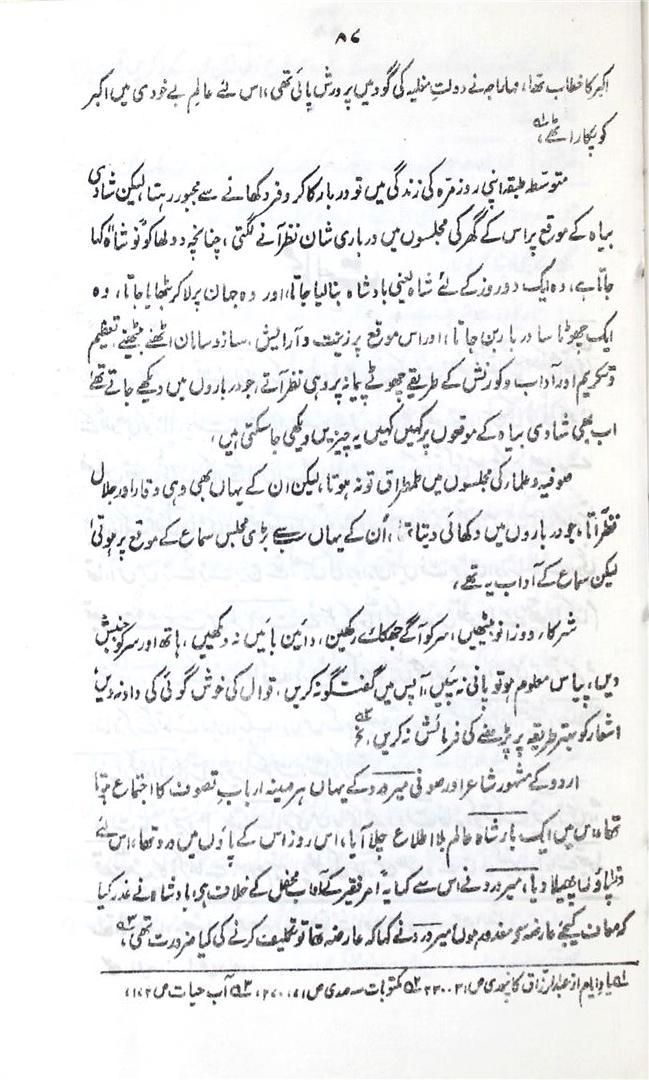 ۸۷
اکبر کا خطاب تھا، مہاراجہ نے دولتِ مغلیہ کی گود میں پرورش پائی تھی، اس لئے عالم بے خودی میں اکبر
کو پکار اٹھے،
متوسط طبقہ اپنی روزمرہ کی زندگی میں تو دربار کا کر و فر دکھانے سے مجبور رہتا لیکن شادی
بیاہ کے موقع پر اس کے گھر کی مجلسوں میں درباری شان نظر آنے لگتی، چنانچہ دولھا کو نوشاہ کہا
جاتا ہے، وہ ایک دو روز کے لئے شاہ یعنی بادشاہ بنا لیا جاتا، اور وہ جہان پر لا کر بٹھایا جاتا، وہ
ایک چھوٹا سا دربار بن جاتا، اور اس موقع پر زینت و آرایش، ساز و سامان اٹھنے بیٹھنے، تعظیم
و تکریم اور آداب و کورنش کے طریقے چھوٹے پیمانہ پر وہی نظر آتے، جو درباروں میں دیکھے جاتے تھے
اب بھی شادی بیاہ کے موقعوں پر کہیں کہیں یہ چیزیں دیکھی جا سکتی ہیں،
صوفیہ و علماء کی مجلسوں میں طمطراق تو نہ ہوتا، لیکن ان کے یہاں بھی وہی وقار اور جلال
نظر آتا، جو درباروں میں دکھائی دیتا تھا، اُن کے یہاں سب سے بڑی مجلس سماع کے موقع پر ہوتی،
لیکن سماع کے آداب یہ تھے،
شرکاء دو زانو بیٹھیں، سر کو آگے جھکائے رکھیں، دائیں بائیں نہ دیکھیں، ہاتھ اور سر کو جنبش
دیں، پیاس معلوم ہو تو پانی نہ پئیں، آپس میں گفتگو نہ کریں، قوال کی خوش گوئی کی داد نہ دیں،
اشعار کو بہتر طریقہ پر پڑھنے کی فرمائش نہ کریں،
اردو کے مشہور شاعر اور صوفی میر درد کے یہاں ہر مہینہ اربابِ تصوف کا اجتماع ہوتا
تھا، اس میں ایک بار شاہ عالم بلا اطلاع چلا آیا، اس روز اس کے پاؤں میں درد تھا، اس لئے
ذرا پاؤں پھیلا دیا، میر درد نے اس سے کہا یہ امر فقیر کے آدابِ محفل کے خلاف ہی، بادشاہ نے عذر کیا
کہ معاف کیجئے عارضہ سے معذور ہوں، میر درد نے کہا کہ عارضہ تھا تو تکلیف کرنے کی کیا ضرورت تھی،
؎۱ یادِ ایام از عبدالرزاق کانپوری ص ؎۲ مکتوبات سہ صدی ص ؎۳ آب حیات ص